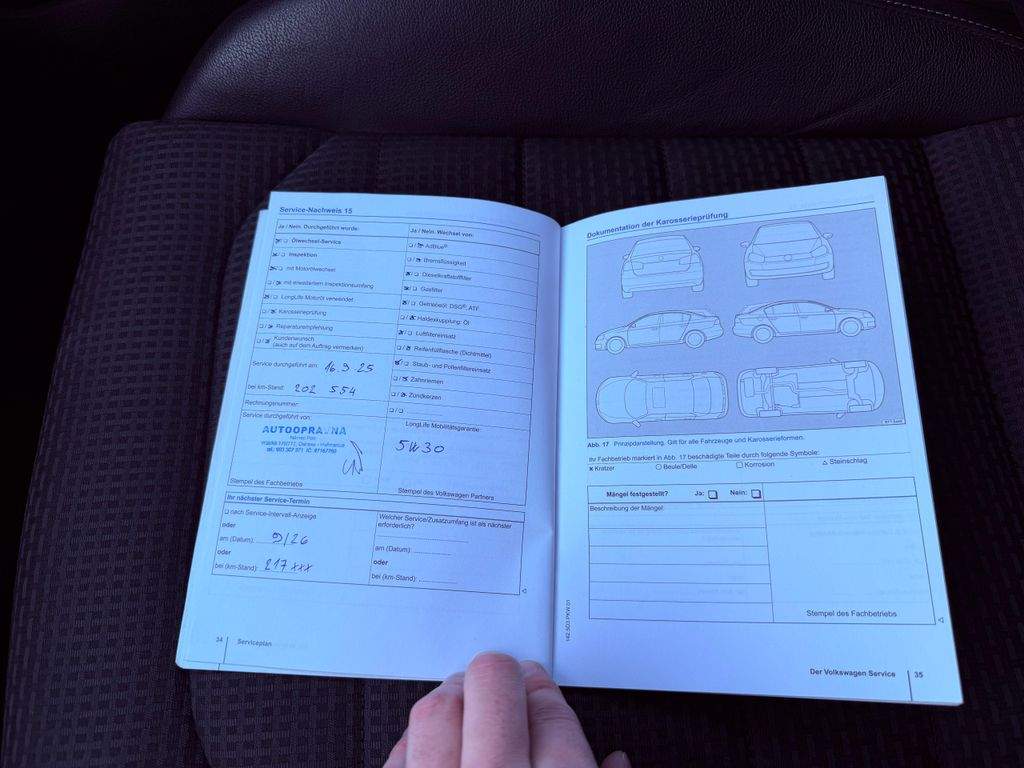 Service-Nachweis 15
Ja / Nein. Durchgeführt wurde:
Ölwechsel-Service
Inspektion
mit Motorölwechsel
mit erweitertem Inspektionsumfang
LongLife Motoröl verwendet
Karosserieprüfung
Reparaturempfehlung
Kundenwunsch
(auch auf dem Auftrag vermerken)
Service durchgeführt am: 16.9 25
bei km-Stand: 202 554
Rechnungsnummer:
Service durchgeführt von:
AUTOOPRAVNA
Stempel des Fachbetriebs
Ja / Nein. Wechsel von:
AdBlue®
Bremsflüssigkeit
Dieselkraftstofffilter
Gasfilter
Getriebeöl: DSG®, ATF
Haldexkupplung: Öl
Luftfiltereinsatz
Reifenfüllflasche (Dichtmittel)
Staub- und Pollenfiltereinsatz
Zahnriemen
Zündkerzen
LongLife Mobilitätsgarantie:
5W30
Stempel des Volkswagen Partners
Ihr nächster Service-Termin
nach Service-Intervall-Anzeige
oder
am (Datum): 9/26
oder
bei (km-Stand): 217 xxx
Welcher Service/Zusatzumfang ist als nächster
erforderlich?
am (Datum):
oder
bei (km-Stand):
34 Serviceplan
Dokumentation der Karosserieprüfung
Abb. 17 Prinzipdarstellung. Gilt für alle Fahrzeuge und Karosserieformen.
Ihr Fachbetrieb markiert in Abb. 17 beschädigte Teile durch folgende Symbole:
x Kratzer ○ Beule/Delle □ Korrosion △ Steinschlag
Mängel festgestellt? Ja: Nein:
Beschreibung der Mängel:
Stempel des Fachbetriebs
Der Volkswagen Service 35